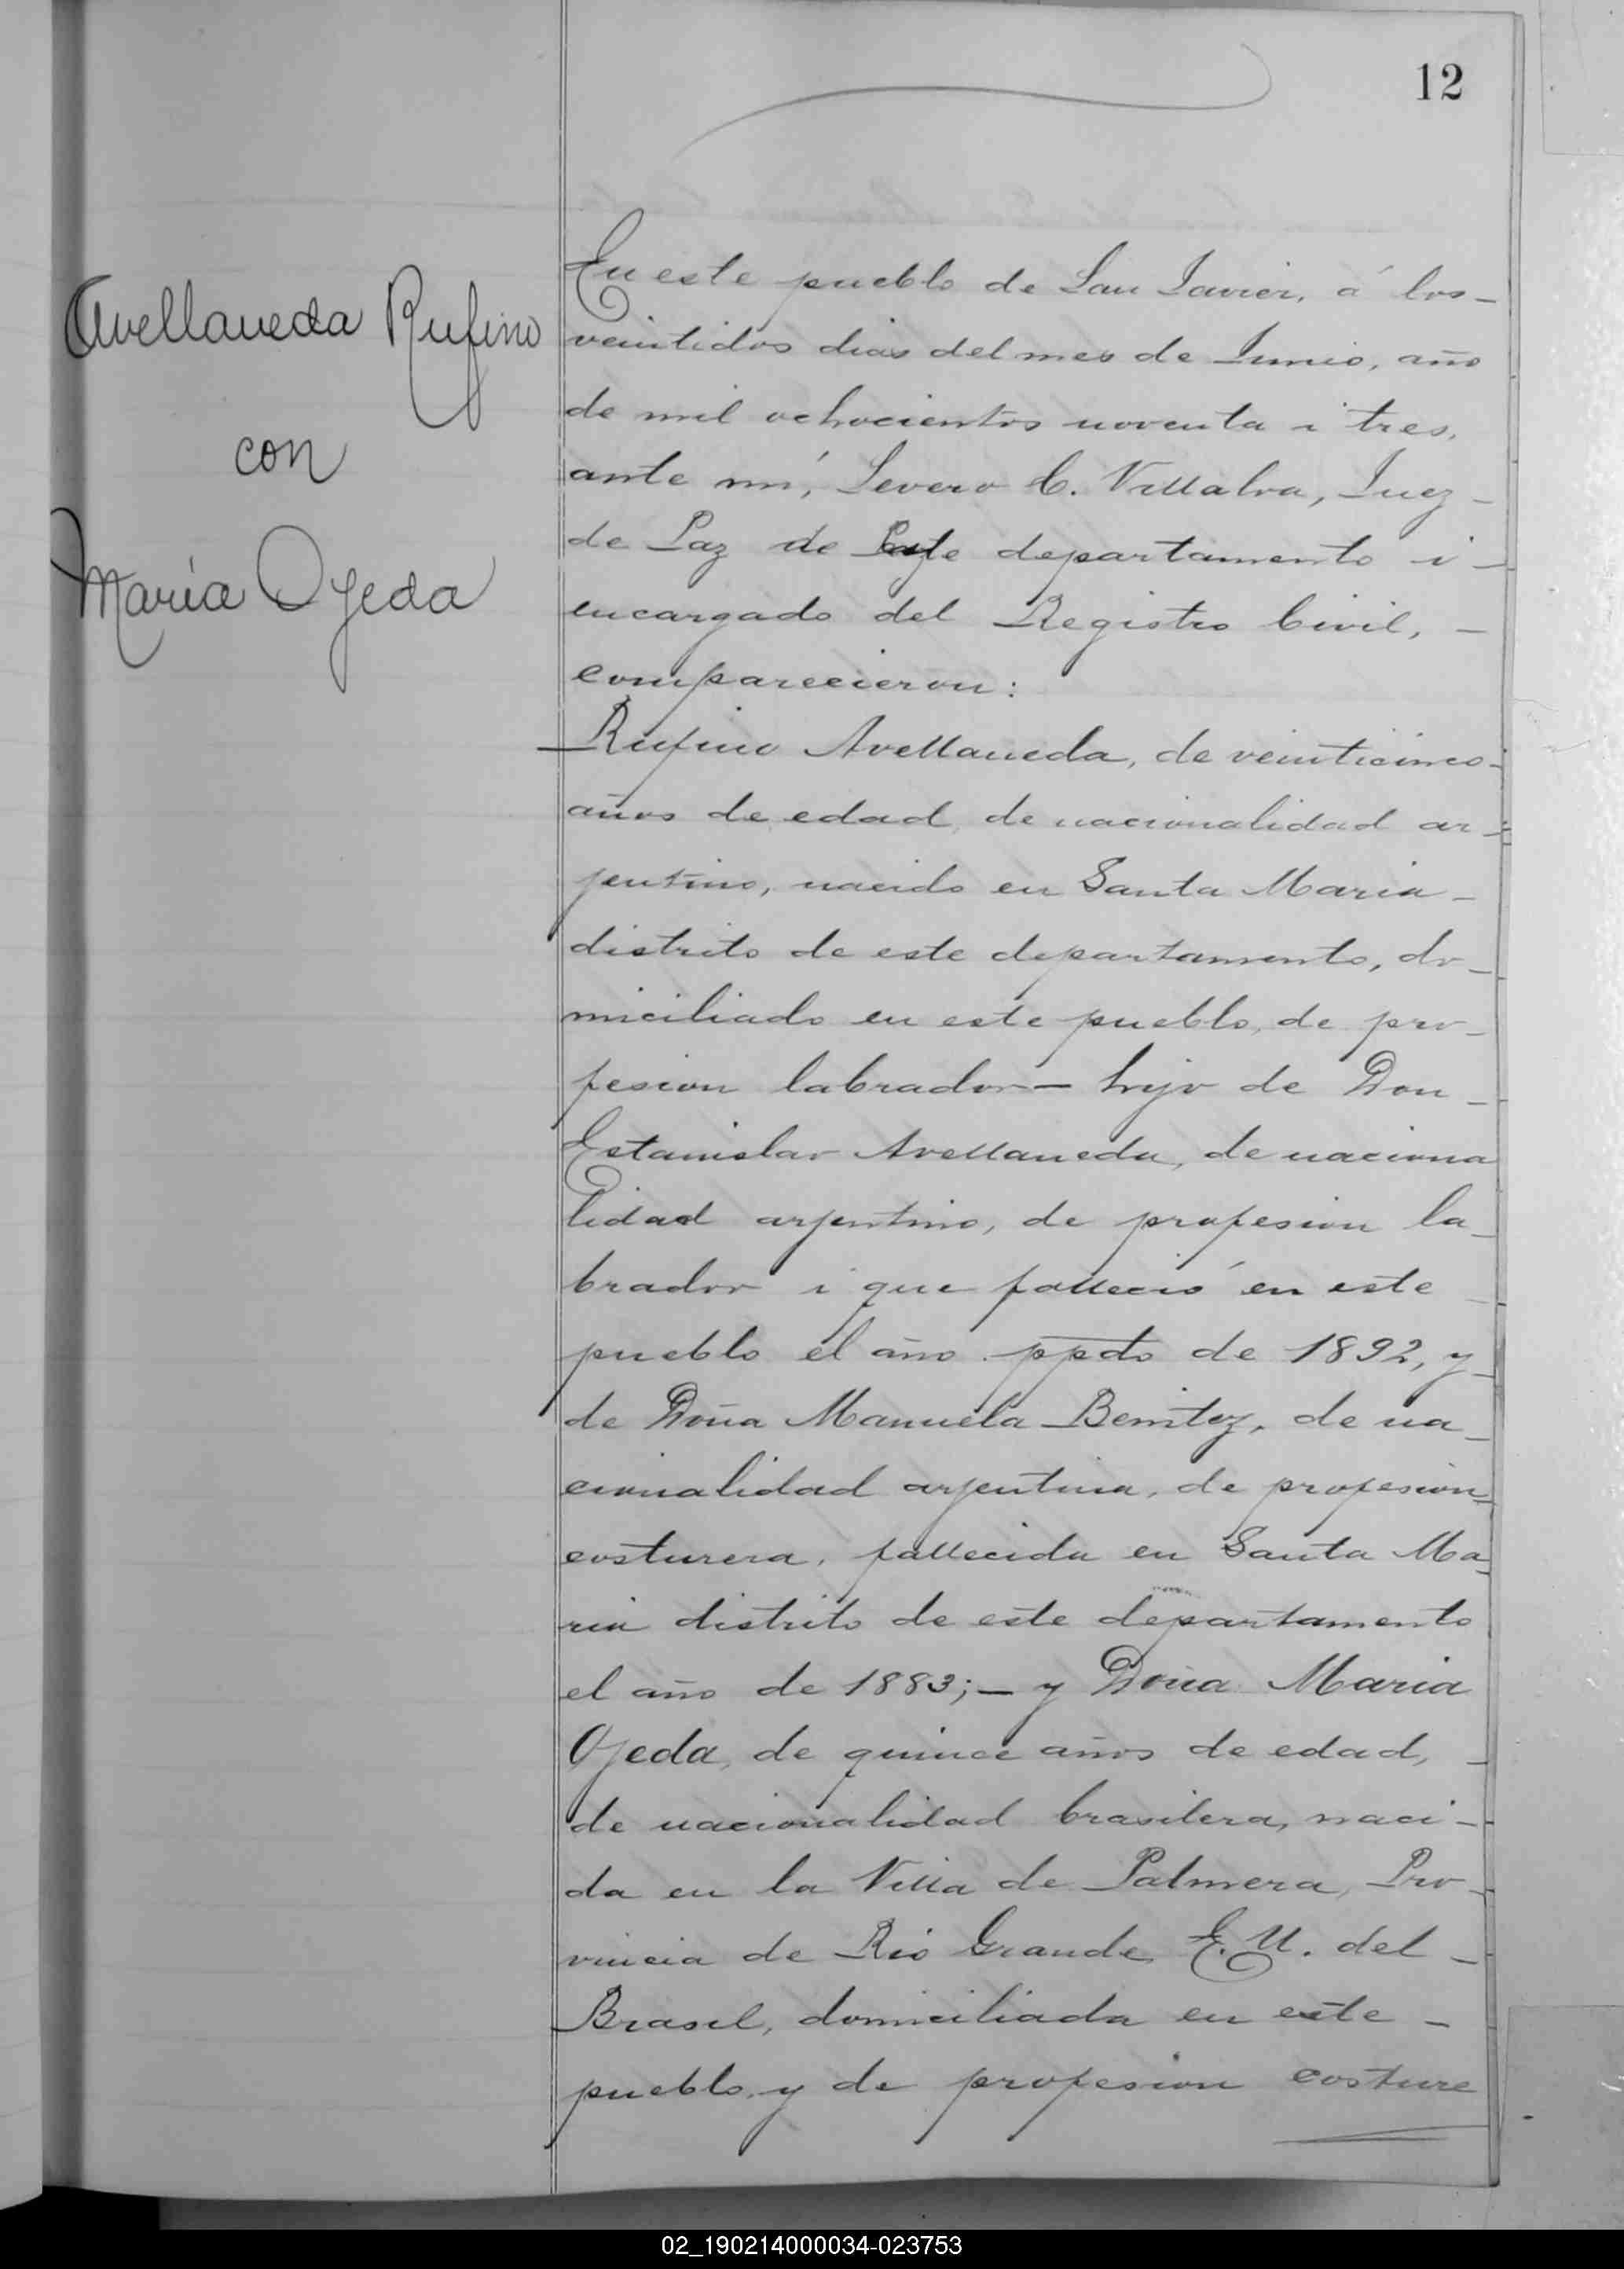 12
Avellaneda Rufino
con
María Ojeda
En este pueblo de San Javier, á los
veintidos dias del mes de Junio, año
de mil ochocientos noventa i tres,
ante mí, Severo C. Villalva, Juez
de Paz de este departamento i
encargado del Registro Civil,
comparecieron:
Rufino Avellaneda, de veinticinco
años de edad, de nacionalidad ar-
jentino, nacido en Santa Maria
distrito de este departamento, do-
miciliado en este pueblo, de pro-
fesion labrador — hijo de Don
Estanislao Avellaneda, de naciona
lidad arjentino, de profesion la-
brador i que falleció en este
pueblo el año ppdo de 1892, y
de Doña Manuela Benitez, de na-
cionalidad arjentina, de profesion
costurera, fallecida en Santa Ma-
ria distrito de este departamento
el año de 1883; — y Doña Maria
Ojeda, de quince años de edad,
de nacionalidad brasilera, naci-
da en la Villa de Palmera, Pro-
vincia de Rio Grande E. U. del
Brasil, domiciliada en este
pueblo y de profesion costure
02_190214000034-023753